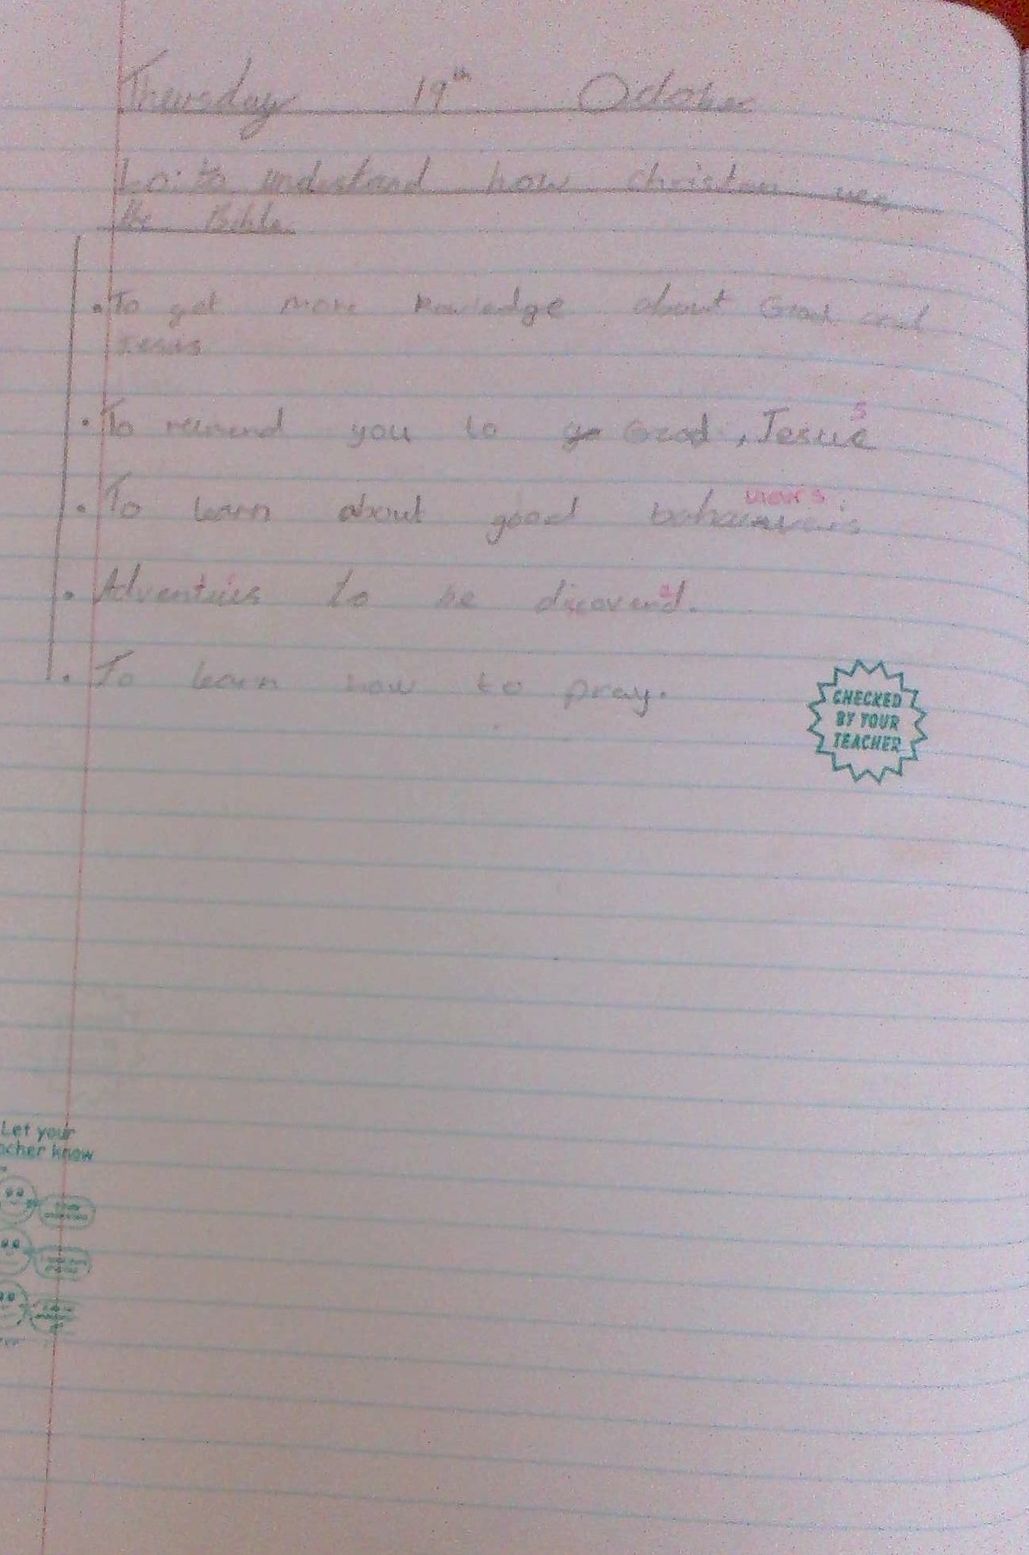 Thursday 19th October
Lo: to understand how christian use
the Bible
• To get more knowledge about God and
Jesus
• To remind you to God, Jesus
• To learn about good behaviours
• Adventures to be discovered.
• To learn how to pray.
CHECKED
BY YOUR
TEACHER
Let your
acher know